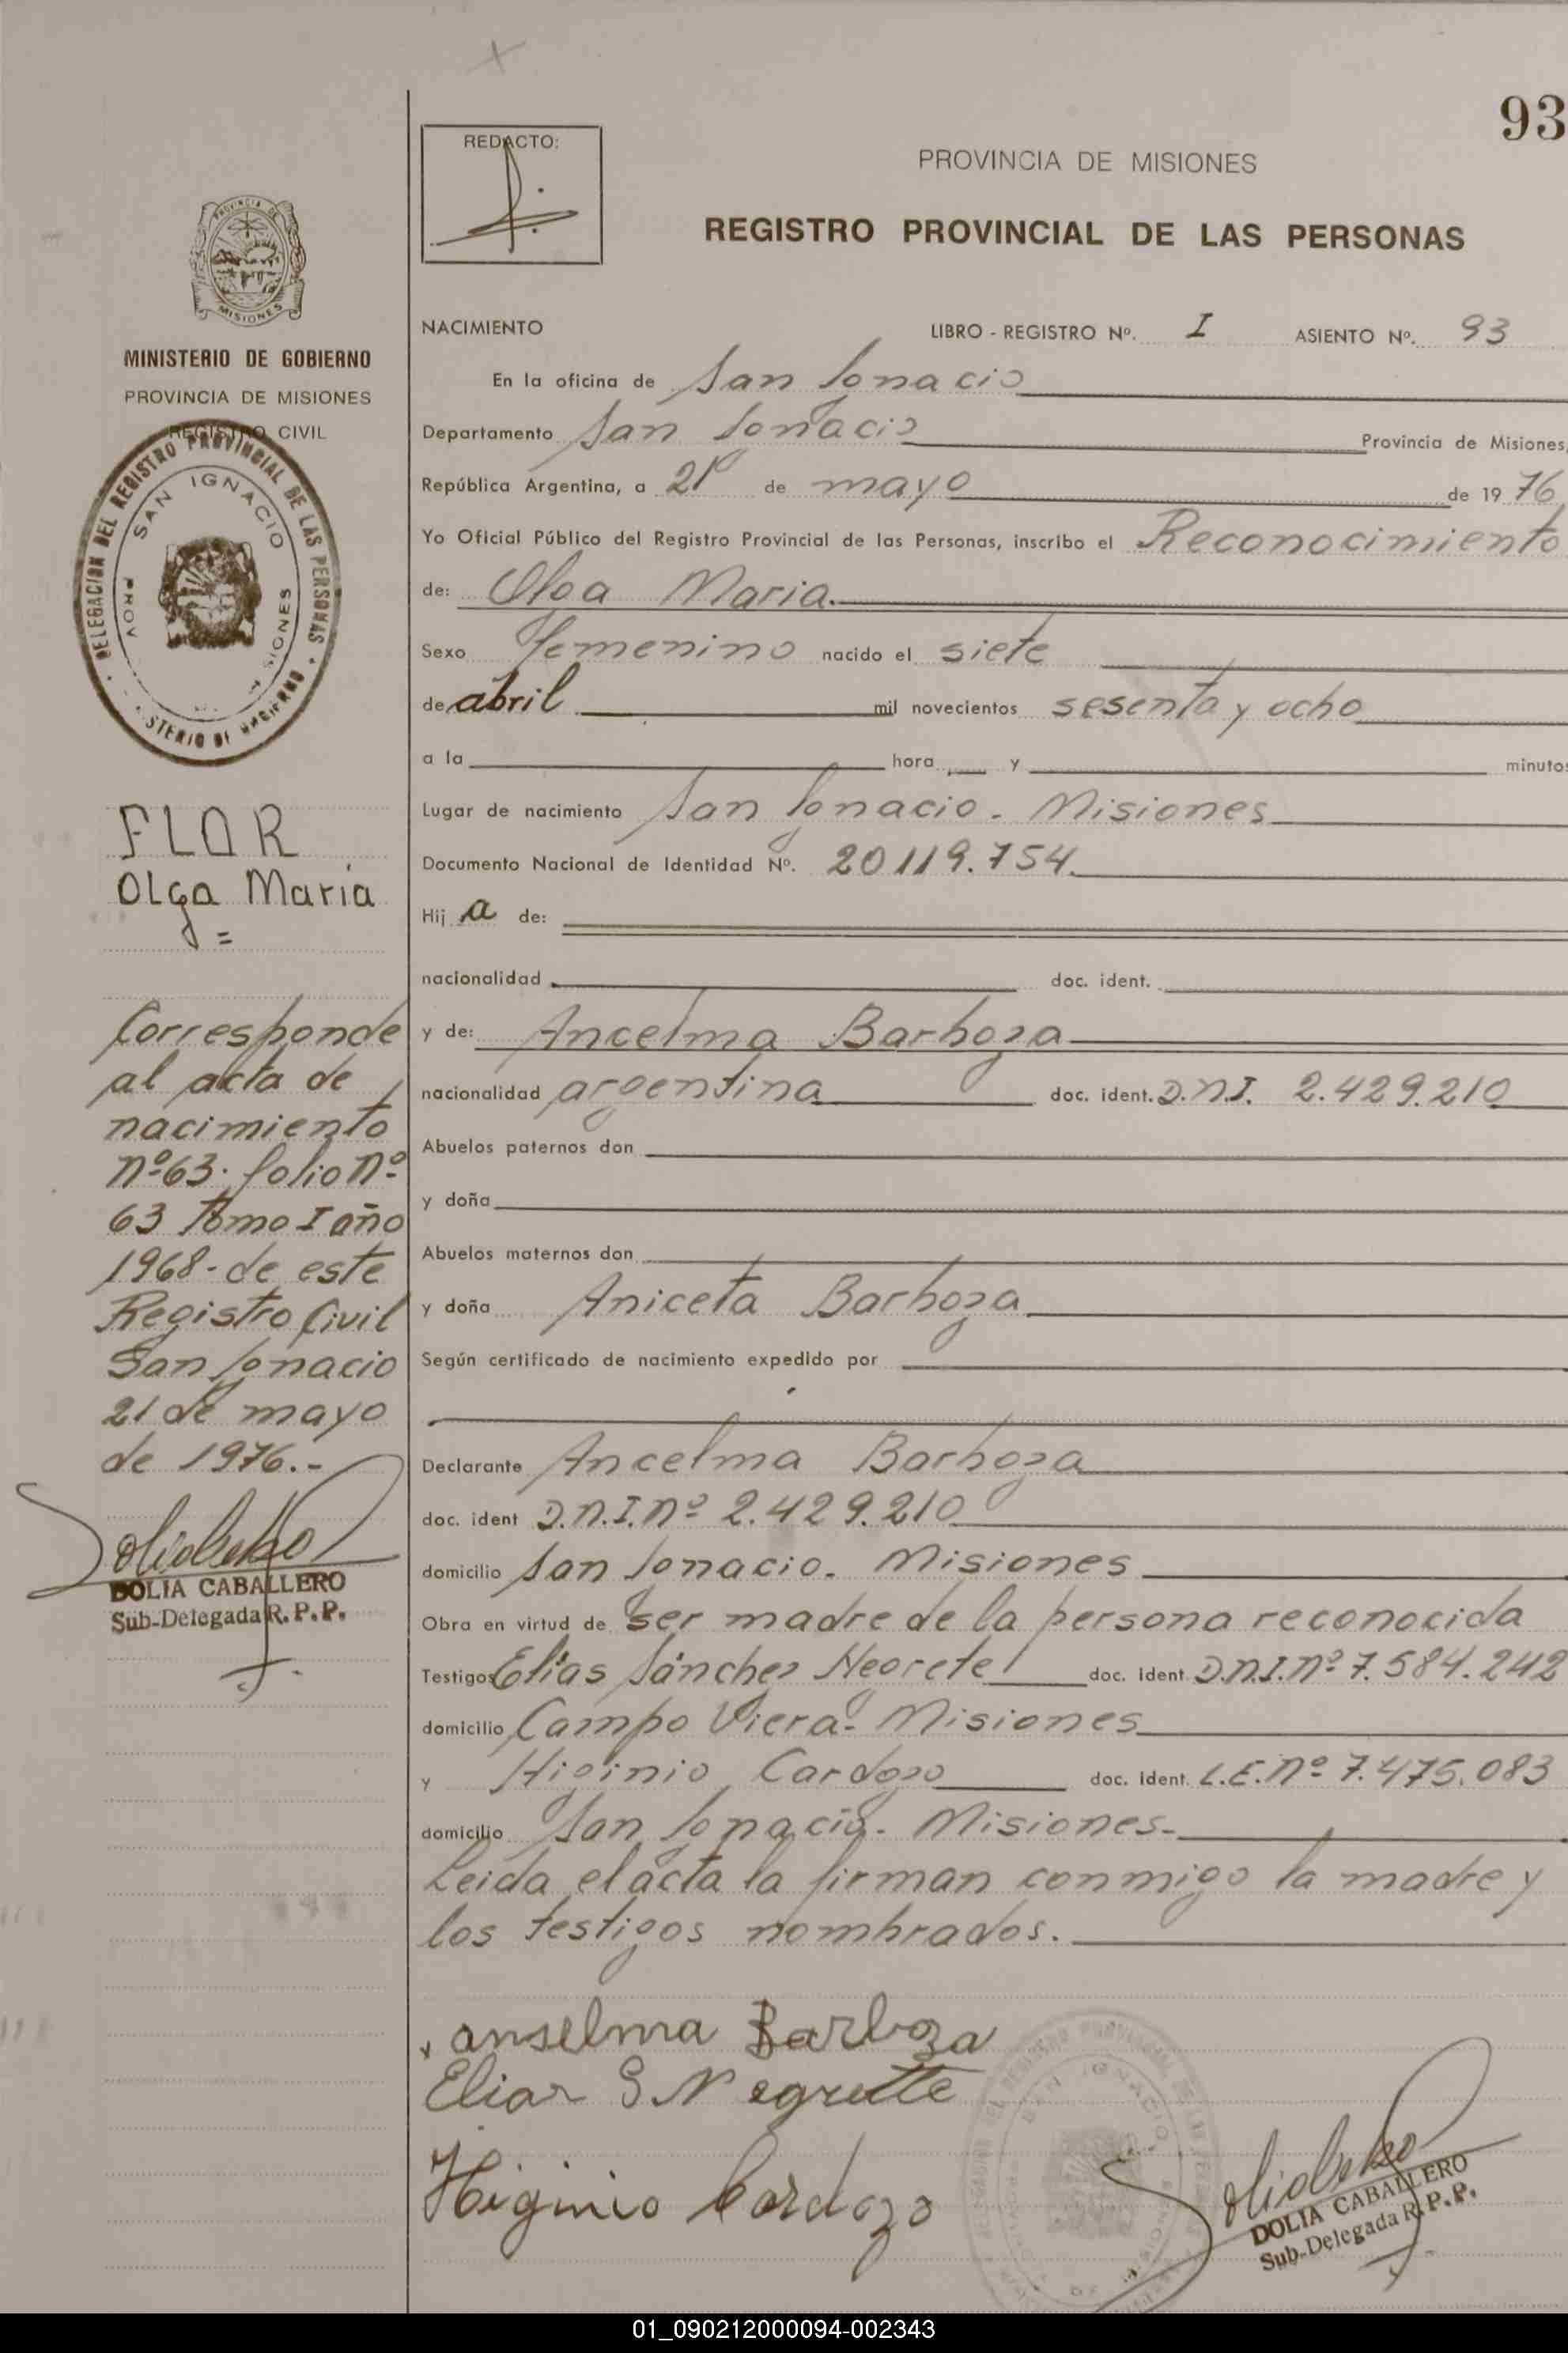 93
REDACTO:
PROVINCIA DE MISIONES
REGISTRO PROVINCIAL DE LAS PERSONAS
PROVINCIA DE
MISIONES
MINISTERIO DE GOBIERNO
PROVINCIA DE MISIONES
REGISTRO CIVIL
DELEGACION DEL REGISTRO PROVINCIAL DE LAS PERSONAS
SAN IGNACIO
PROV
SIONES
FLOR
Olga María
=
Corresponde
al acta de
nacimiento
nº 63. folio nº
63 tomo I año
1968 - de este
Registro Civil
San Ignacio
21 de mayo
de 1976.-
DOLIA CABALLERO
Sub-Delegada R.P.P.
NACIMIENTO LIBRO - REGISTRO Nº. I ASIENTO Nº. 93
En la oficina de San Ignacio
Departamento San Ignacio Provincia de Misiones,
República Argentina, a 21 de mayo de 19 76
Yo Oficial Público del Registro Provincial de las Personas, inscribo el Reconocimiento
de: Olga Maria.
Sexo Femenino nacido el siete
de abril mil novecientos sesenta y ocho
a la hora y minutos
Lugar de nacimiento San Ignacio - Misiones
Documento Nacional de Identidad Nº. 20119.754.
Hij a de:
nacionalidad doc. ident.
y de: Ancelma Barboza
nacionalidad argentina doc. ident. D.N.I. 2.429.210
Abuelos paternos don
y doña
Abuelos maternos don
y doña Aniceta Barboza
Según certificado de nacimiento expedido por
Declarante Ancelma Barboza
doc. ident D.N.I. nº 2.429.210
domicilio San Ignacio - Misiones
Obra en virtud de ser madre de la persona reconocida
Testigos Elías Sánchez Negrete doc. ident. D.N.I. nº 7.584.242
domicilio Campo Viera - Misiones
y Higinio Cardozo doc. ident. L.E. nº 7.475.083
domicilio San Ignacio - Misiones -
Leida el acta la firman conmigo la madre y
los testigos nombrados.
anselma Barboza
Elias S. Negrette
Higinio Cardozo
DOLIA CABALLERO
Sub-Delegada R.P.P.
01_090212000094-002343